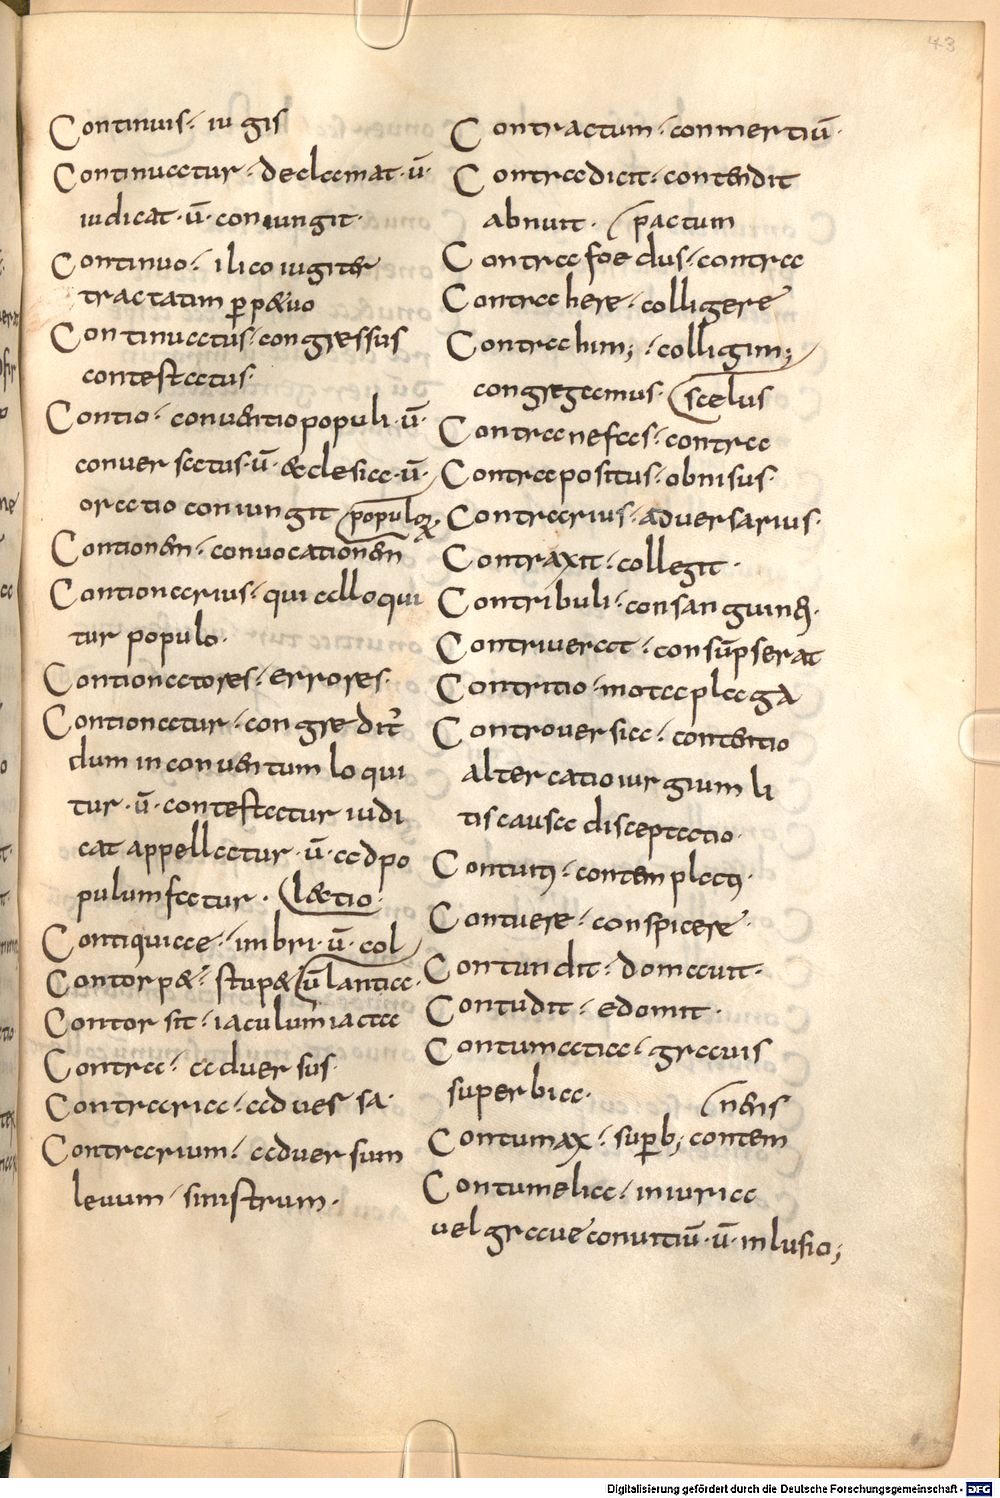 43
Continuis · iugis
Continuatur · declamat · ū ·
iudicat · ū · coniungit ·
Continuo · ilico iugiter
tractatim ꝑp&uo
Continuatus · congressus
contestatus ·
Contio · conuentio populi · ū ·
conuersatus · ū · &clesia · ū ·
oratio coniungit populoꝝ
Contionem · conuocationem
Contionarius · qui alloqui
tur populo ·
Contionatores · errores ·
Contionatur · congredit᷒
dum in conuentum loqui
tur · ū · contestatur iudi
cat appellatur · ū · ad po
pulum fatur · laetio ·
Contiquiae · imbri · ū · col
Contorp& · stup& ūlantia ·
Contorsit · iaculum iacta
Contra · aduersus ·
Contraria · aduersa ·
Contrarium · aduersum
leuum sinistrum ·
Contractum · conmertiū ·
Contradicit · contendit
abnuit · pactum
Contrafoedus · contra
Contrahere · colligere
Contrahim; · colligim;
congregamus · scelus
Contranefas · contra
Contrapositus · obnisus ·
Contrarius · aduersarius ·
Contraxit · collegit ·
Contribuli · consanguinei ·
Contriuerat · consūpserat
Contritio · mota plaga
Controuersia · contentio
altercatio iurgium li
tis causa disceptatio ·
Contuit; · contemplat; ·
Contuere · conspicere ·
Contundit · domauit ·
Contudit · edomit ·
Contumatia · grauis
superbia · nens
Contumax · suꝑb; contem
Contumelia · iniuria
uel graue conuitiū · ū · inlusio;
Digitalisierung gefördert durch die Deutsche Forschungsgemeinschaft - DFG